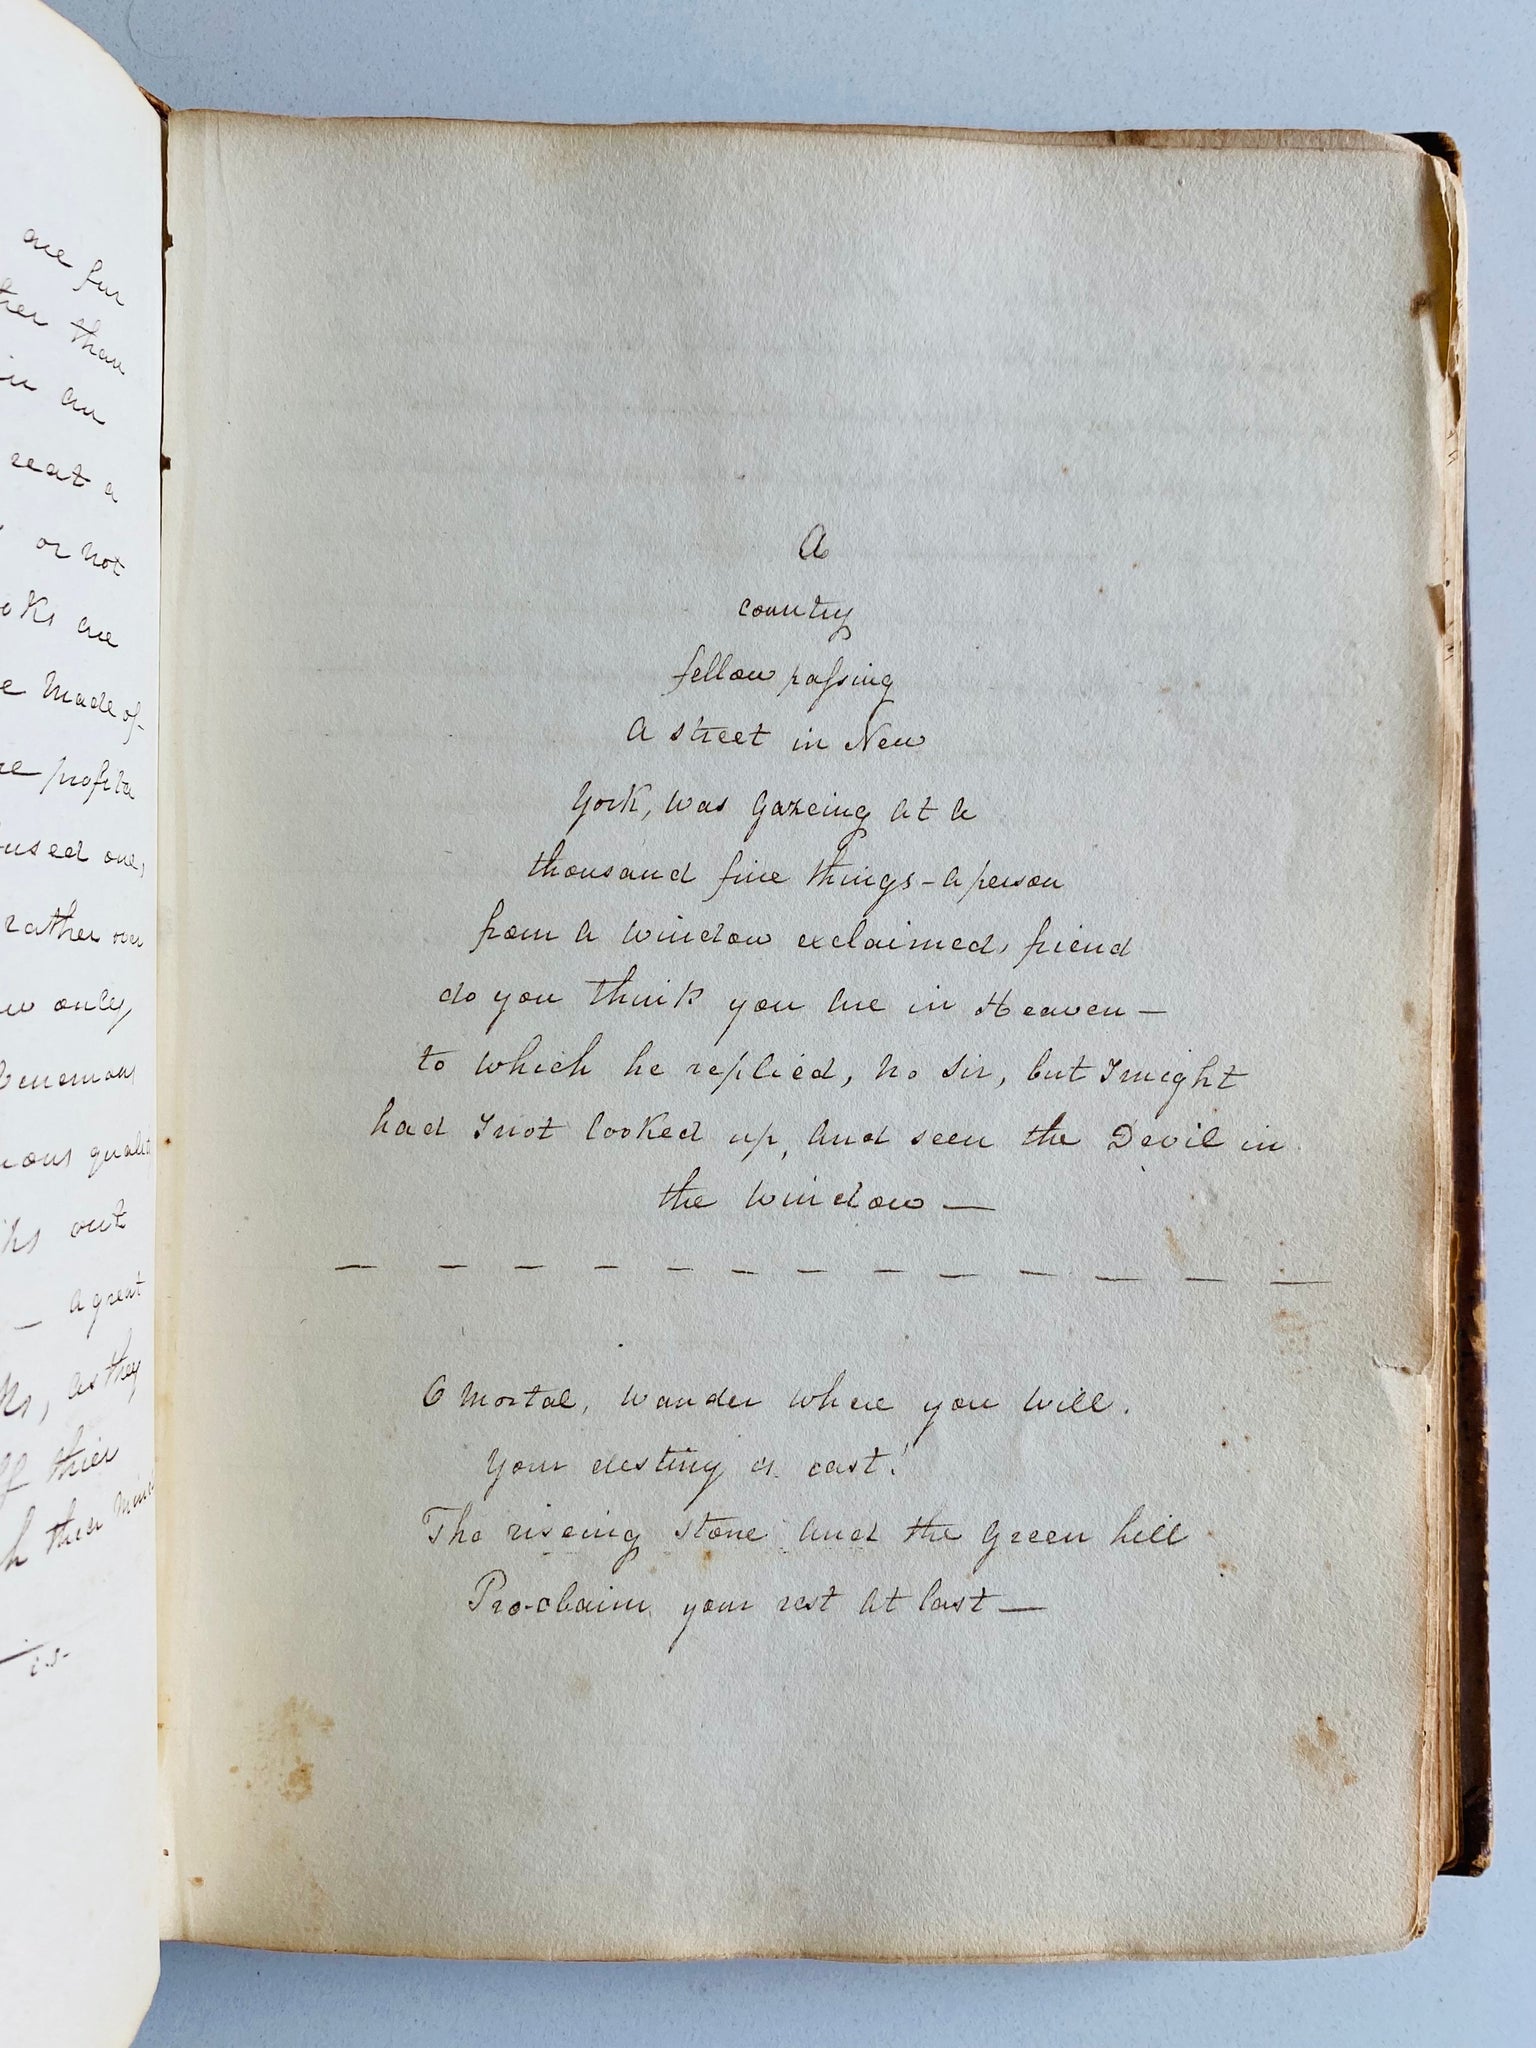 are fur
ther than
in an
reat a
or not
oks are
e made of
re profita
fused one,
rather over
w only,
venemous
ious qualit
ks out
– a great
ks, as they
ff thier
h their mind
is-
A
country
fellow paſsing
A street in New
York, was Gazeing at a
thousand fine things – a person
from a window exclaimed, friend
do you think you are in Heaven —
to which he replied, no Sir, but I might
had I not looked up, and seen the Devil in
the window —
— — — — — — — — — — — — —
O Mortal, wander where you will.
Your destiny is cast!
The riseing Stone and the Green hill
Pro-claim your rest at last —